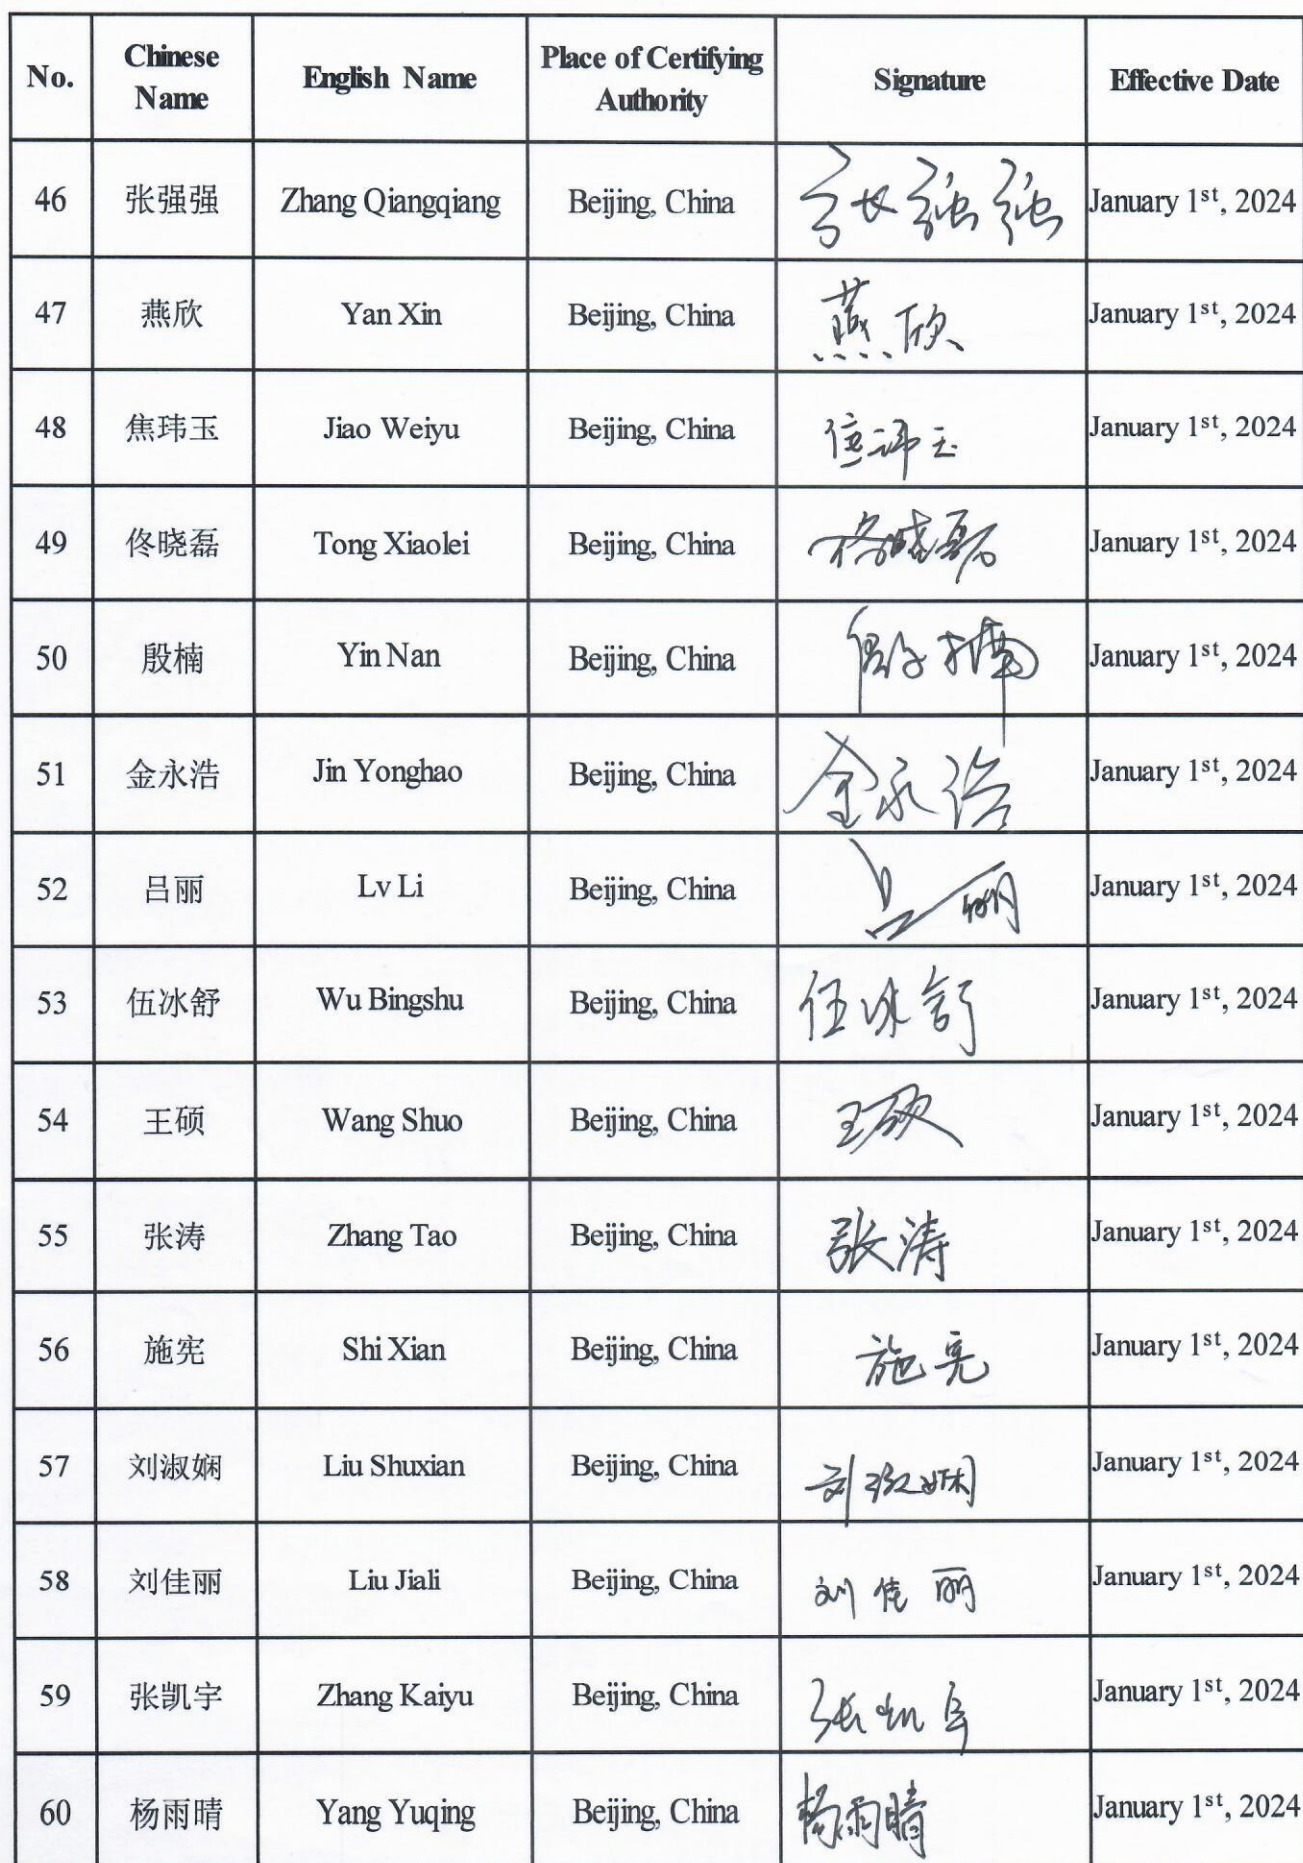 No. Chinese Name English Name Place of Certifying Authority Signature Effective Date
46 张强强 Zhang Qiangqiang Beijing, China 张强强 January 1st, 2024
47 燕欣 Yan Xin Beijing, China 燕欣 January 1st, 2024
48 焦玮玉 Jiao Weiyu Beijing, China 焦玮玉 January 1st, 2024
49 佟晓磊 Tong Xiaolei Beijing, China 佟晓磊 January 1st, 2024
50 殷楠 Yin Nan Beijing, China 殷楠 January 1st, 2024
51 金永浩 Jin Yonghao Beijing, China 金永浩 January 1st, 2024
52 吕丽 Lv Li Beijing, China 吕丽 January 1st, 2024
53 伍冰舒 Wu Bingshu Beijing, China 伍冰舒 January 1st, 2024
54 王硕 Wang Shuo Beijing, China 王硕 January 1st, 2024
55 张涛 Zhang Tao Beijing, China 张涛 January 1st, 2024
56 施宪 Shi Xian Beijing, China 施宪 January 1st, 2024
57 刘淑娴 Liu Shuxian Beijing, China 刘淑娴 January 1st, 2024
58 刘佳丽 Liu Jiali Beijing, China 刘佳丽 January 1st, 2024
59 张凯宇 Zhang Kaiyu Beijing, China 张凯宇 January 1st, 2024
60 杨雨晴 Yang Yuqing Beijing, China 杨雨晴 January 1st, 2024